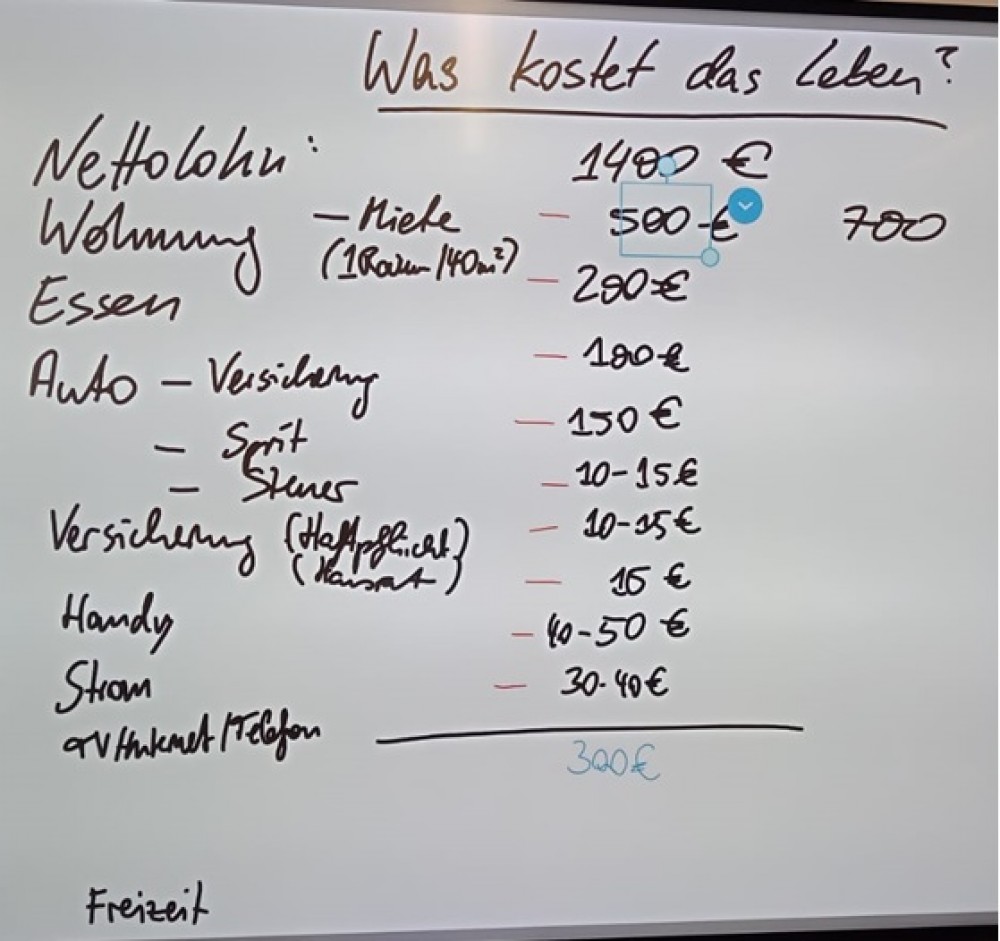 Was kostet das Leben?
Nettolohn: 1400 €
Wohnung – Miete – 500 € 700
(1Raum/40m²)
Essen – 200 €
Auto – Versicherung – 100 €
– Sprit – 150 €
– Steuer – 10-15 €
Versicherung (Haftpflicht) – 10-15 €
(Hausrat)
Handy – 15 €
Strom – 40-50 €
TV/Internet/Telefon – 30-40 €
300 €
Freizeit